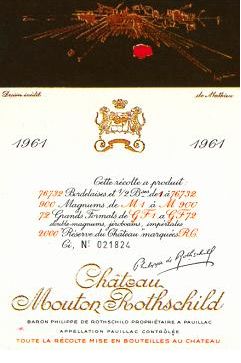 Dessin inédit de Mathieu
1961 1961
Cette récolte a produit
76732 Bordelaises et 1/2 Bses de 1 à 76732
900 Magnums de M 1 à M 900
72 Grands Formats de G F 1 à G F 72
double-magnums, jéroboams, impériales
2000 "Réserve du Château" marquées R.C.
Ci, N° 021824
Philippe de Rothschild
Château
Mouton Rothschild
BARON PHILIPPE DE ROTHSCHILD PROPRIÉTAIRE A PAUILLAC
APPELLATION PAUILLAC CONTRÔLÉE
TOUTE LA RÉCOLTE MISE EN BOUTEILLES AU CHATEAU